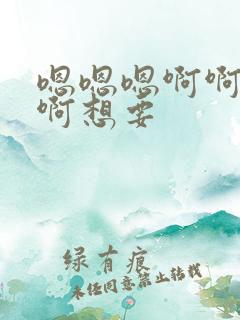 嗯嗯嗯啊啊
啊想要
绿有痕
未经同意禁止转载